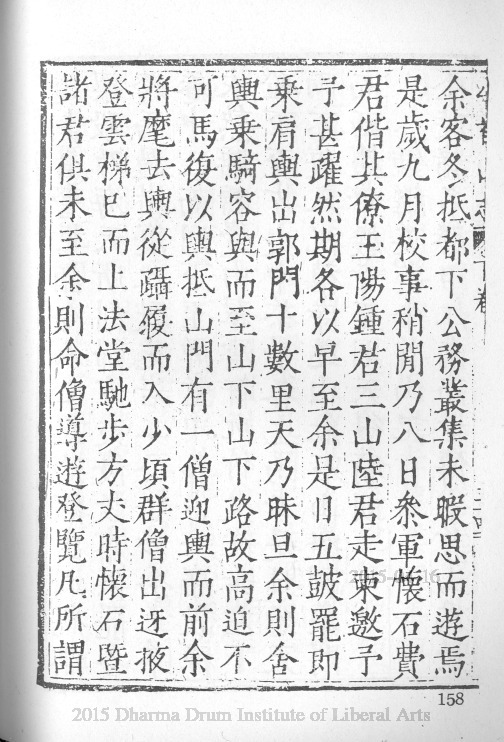 牛首山志 下卷
余客冬抵都下公務叢集未暇思而遊焉
是歲九月校事稍閒乃八日叅軍懷石費
君偕其僚王惕鍾君三山陸君走柬邀予
予甚躍然期各以早至余是日五皷罷即
乘肩輿出郭門十數里天乃昧旦余則舍
輿乘騎容與而至山下山下路故高迫不
可馬復以輿抵山門有一僧迎輿而前余
將麾去輿從躡履而入少頃群僧出迓掖
登雲梯已而上法堂馳步方丈時懷石暨
諸君俱未至余則命僧導遊登覽凡所謂
158
2015 Dharma Drum Institute of Liberal Arts